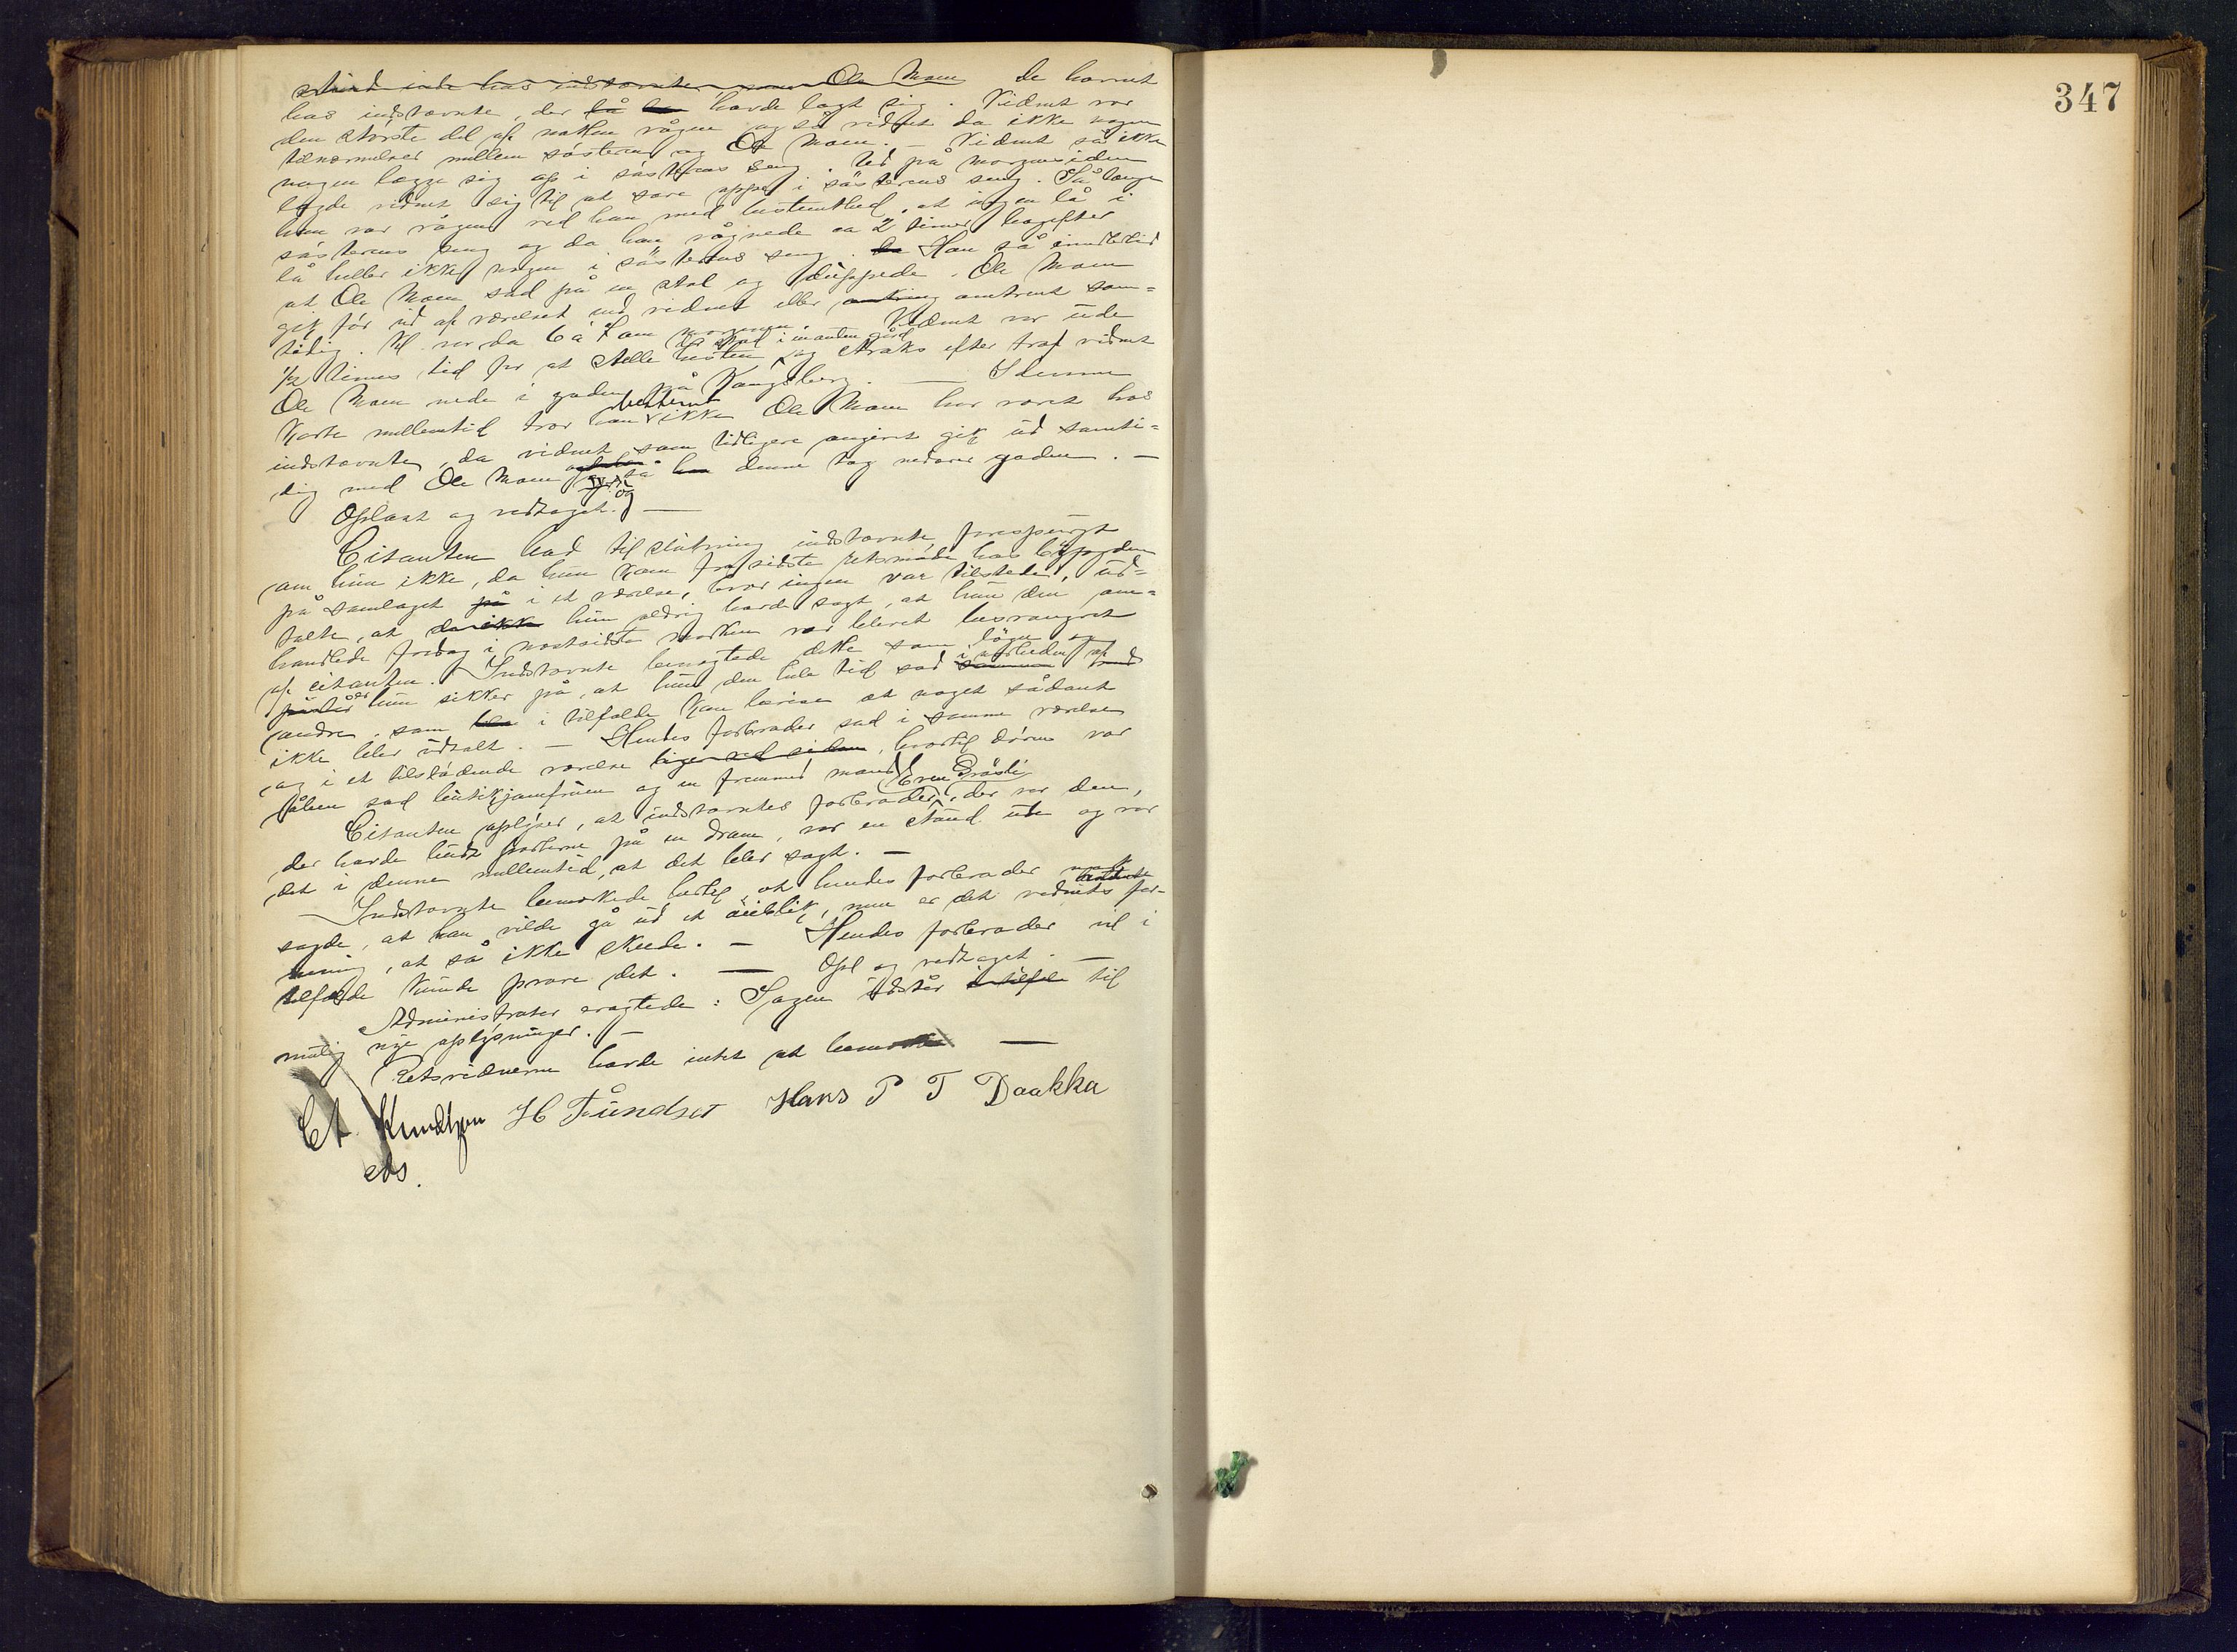 de havnet
hos indstævnte, der havde lagt sig. Vidnet var
den største del af natten vågen og så vidnet da ikke nogen
tilnærmelser mellem søsteren og Ole Moen. – Vidnet så ikke
nogen lægge sig op i søsterens seng. Ved på morgensiden
lagde vidnet sig til at sove oppe i søsterens seng. Så længe
han var vågen ved han med bestemthed, at ingen lå i
søsterens seng og da han vågnede ca 2 timer bagefter
lå heller ikke nogen i søsterens seng. Han så imidlertid
at Ole Moen sad på en stol og duppede. Ole Moen
gik før ud af værelset end vidnet eller omtrent sam=
tidig. Kl var da 6 à 7 om morgenen. Vidnet var ude
1/2 times tid for at stelle hesten i en anden gård og straks efter traf vidnet
Ole Moen nede i gaden på Kongsberg. — I denne
korte mellemtid tror han bestemt ikke Ole Moen har været hos
indstævnte, da vidnet som tidligere angivet gik ud samti=
dig med Ole Moen og så denne tog nedover gaden. –
Oplæst og vedtaget. —
Citanten bad til slutning indstævnte forespurgt
om hun ikke, da hun kom fra sidste retsmøde hos
på samlaget i et værelse, hvor ingen var tilstede, ud=
talte, at hun aldrig havde sagt, at hun den om=
handlede fredag i næstsidste marken var blevet besvangret
af citanten. Indstævnte benægtede dette som løgn og
er hun sikker på, at hun den hele tid sad i nærheden af
andre, som i tilfælde kan bevise at noget sådant
ikke blev udtalt. – Hendes forlovede sad i samme værelse
og i et tilstødende værelse, hvortil døren var
åben sad butikjomfruen og en fremmed mand.
Citanten oplyser, at indstævntes forlovede, Even, der var den,
der havde budt parterne på en dram, var en stund ude og var
det i denne mellemtid, at det blev sagt. –
– Indstævnte bemærkede hertil, at hendes forlovede
sagde, at han vilde gå ud et øieblik, men er det vidnets for-
mening, at så ikke skede. – Hendes forlovede vil i
tilfælde kunde prove det. — Opl og vedtaget. –
Administrator eragtede: Sagen udstår til
mulig nye oplysninger. –
Retsvidnerne havde intet at bemærke —
Ct. Knudtzon H Tundset Hans P T Daakka
cts.
347